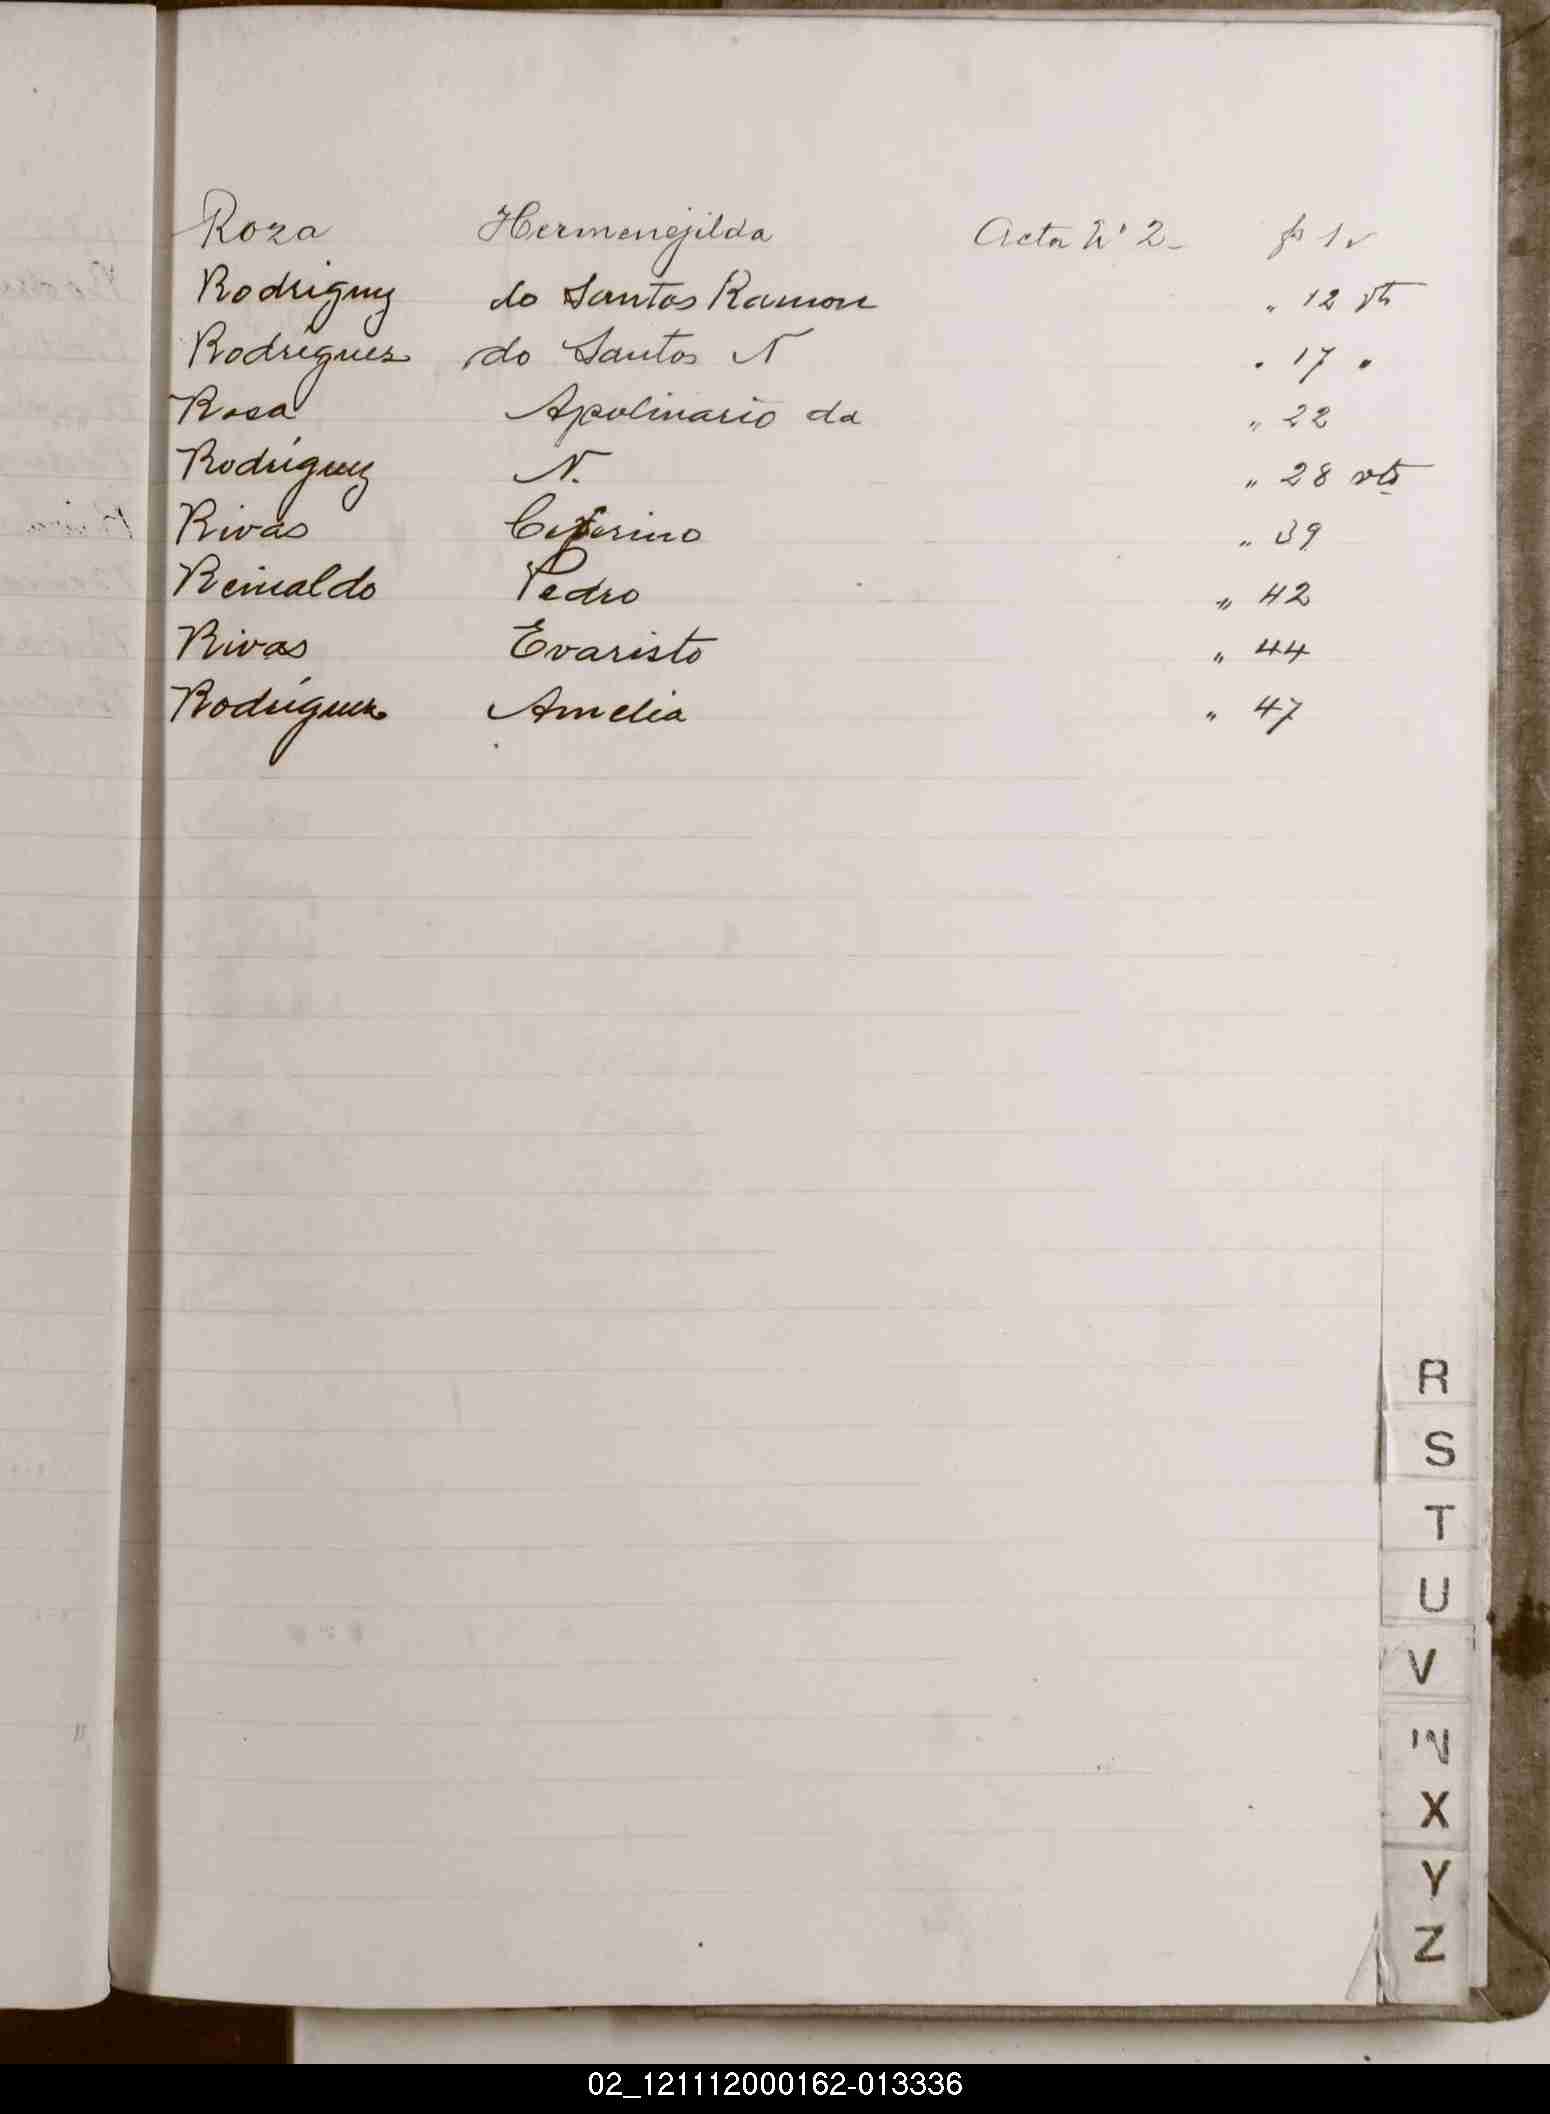 Roza Hermenejilda Acta Nº 2 - fs 1 v
Rodriguez do Santos Ramon " 12 vta
Rodriguez do Santos N " 17 "
Rosa Apolinario da " 22
Rodriguez N. " 28 vta
Rivas Ceferino " 39
Reinaldo Pedro " 42
Rivas Evaristo " 44
Rodriguez Amelia " 47
R
S
T
U
V
W
X
Y
Z
02_121112000162-013336